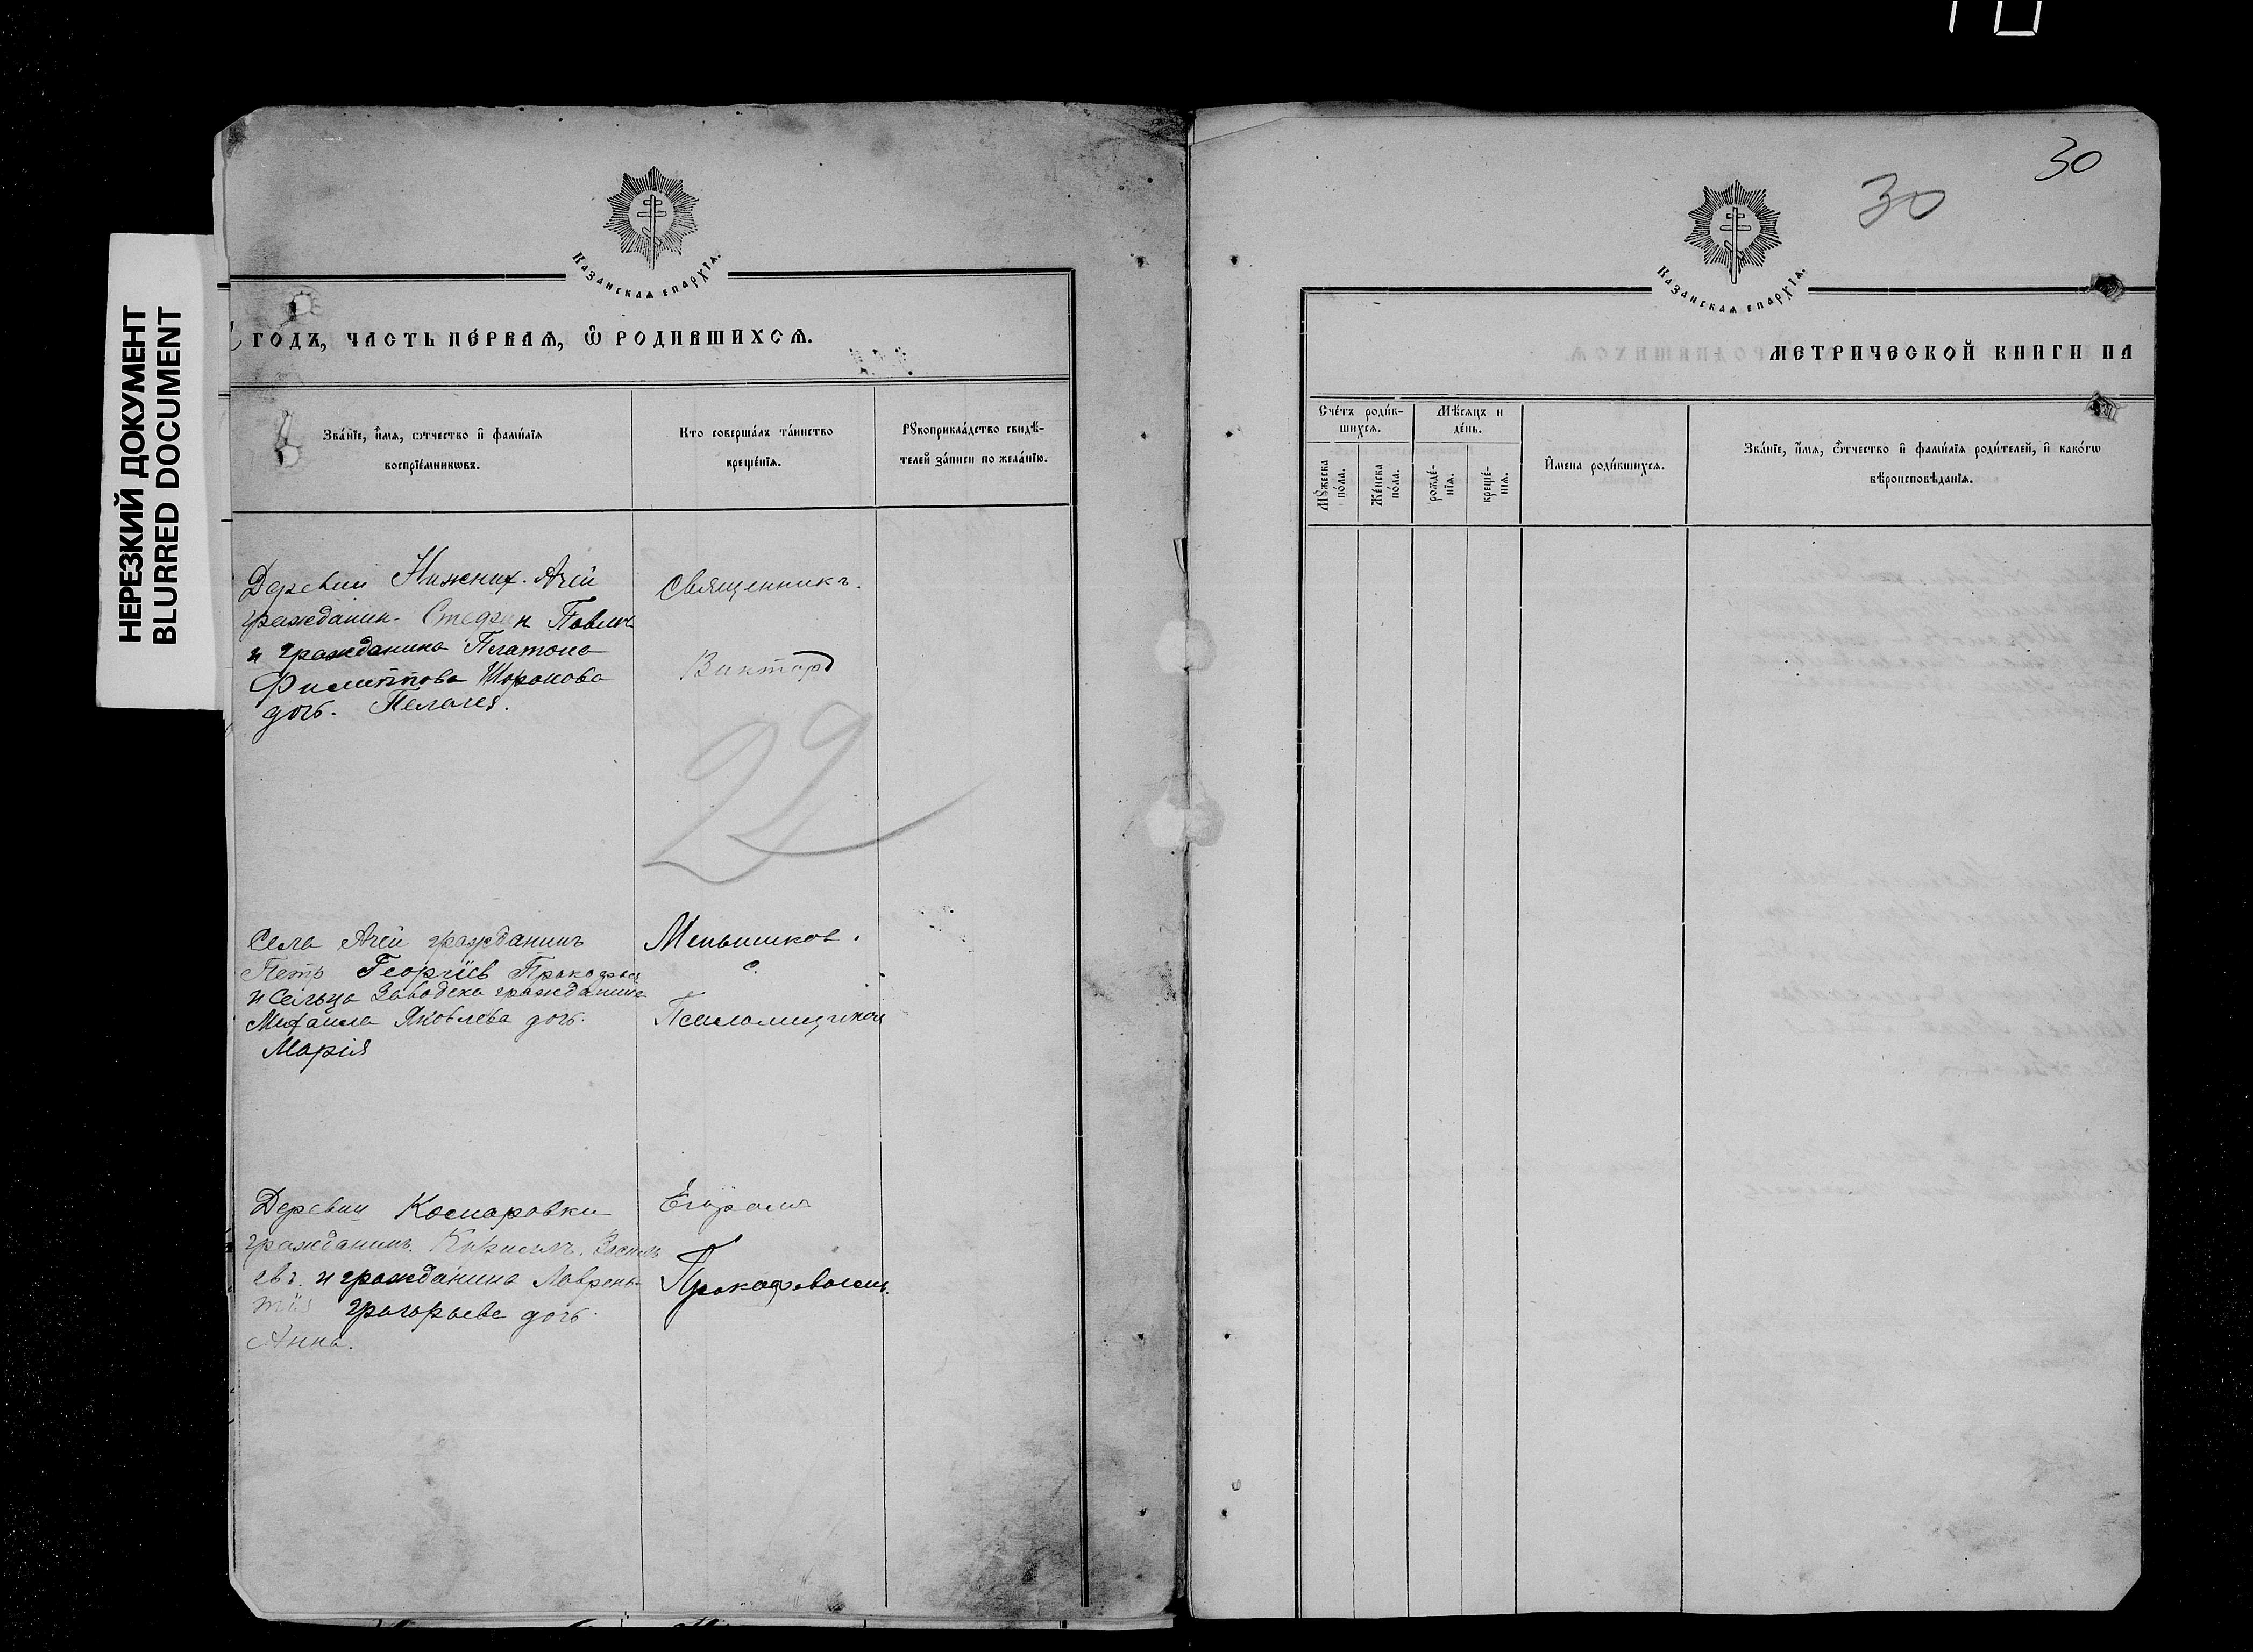 НЕРЕЗКИЙ ДОКУМЕНТ
BLURRED DOCUMENT
Казанская епархїя.
годъ, часть пе́рвая, ѿ родившихся.
Зва́нїе, и҆́мя, ѻтчество и҆ фами́лїя
воспрїе́мниковъ.
Кто соверша́лъ та́инство
креще́нїя.
Рꙋкоприкла́дство свидѣ-
телей за́писи по жела́нїю.
Деревни Нижних. Ачей
гражданин. Стефан Павлов
и гражданина Платона
Филиппова Шоронова
дочь. Пелагея.
Священникъ.
Виктор
22
Села Ачей гражданинъ
Петръ Георгіев Прокофьев
и сельца Заводска гражданина
Михаила Яковлева дочь.
Марія
Меньшиков.
с.
Псаломщиком
Деревни Комаровки
гражданинъ. Кирилъ. Василь
евъ. и гражданина Лаврен-
тія Григорьева дочь.
Анна.
Прокофьевымъ.
30
30
Казанская епархїя.
метрической книги на
Сче́тъ роди́в-
шихся.
Мꙋ́жеска
по́ла.
Же́нска
по́ла.
Мѣ́сяцъ и
де́нь.
рожде́-
нїя.
креще́-
нїя.
И҆мена роди́вшихся.
Зва́нїе, и҆́мя, ѻ҆́тчество и҆ фами́лїя роди́телей, и҆ како́гѡ
вѣроисповѣ́данїя.